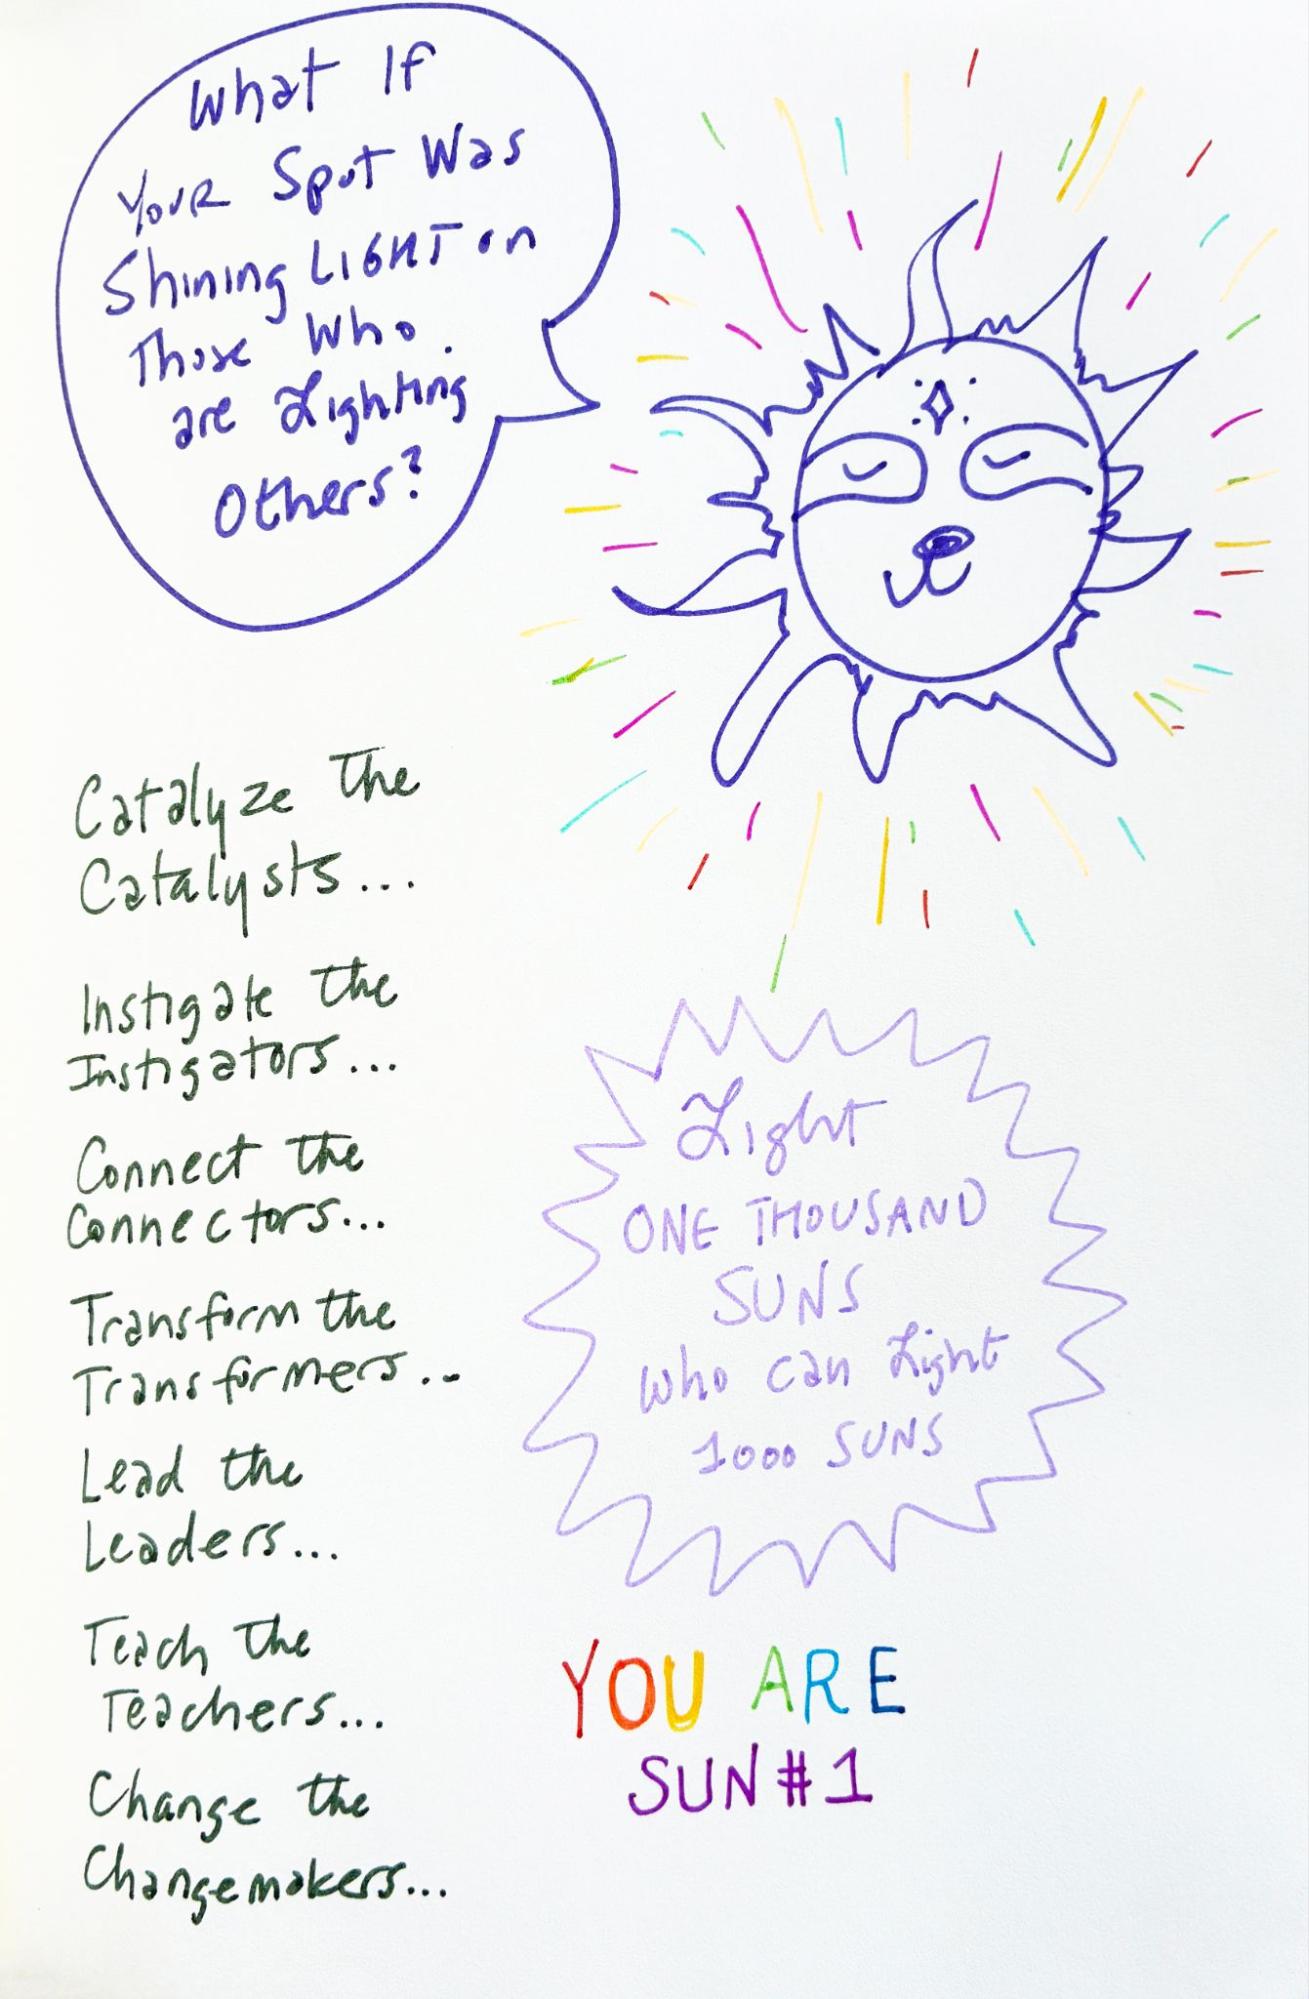 What If
Your Spot Was
Shining LIGHT on
Those Who
are Lighting
Others?
Catalyze the
Catalysts...
Instigate the
Instigators...
Connect the
Connectors...
Transform the
Transformers...
Lead the
Leaders...
Teach the
Teachers...
Change the
Changemakers...
Light
ONE THOUSAND
SUNS
Who can Light
1000 SUNS
YOU ARE
SUN #1